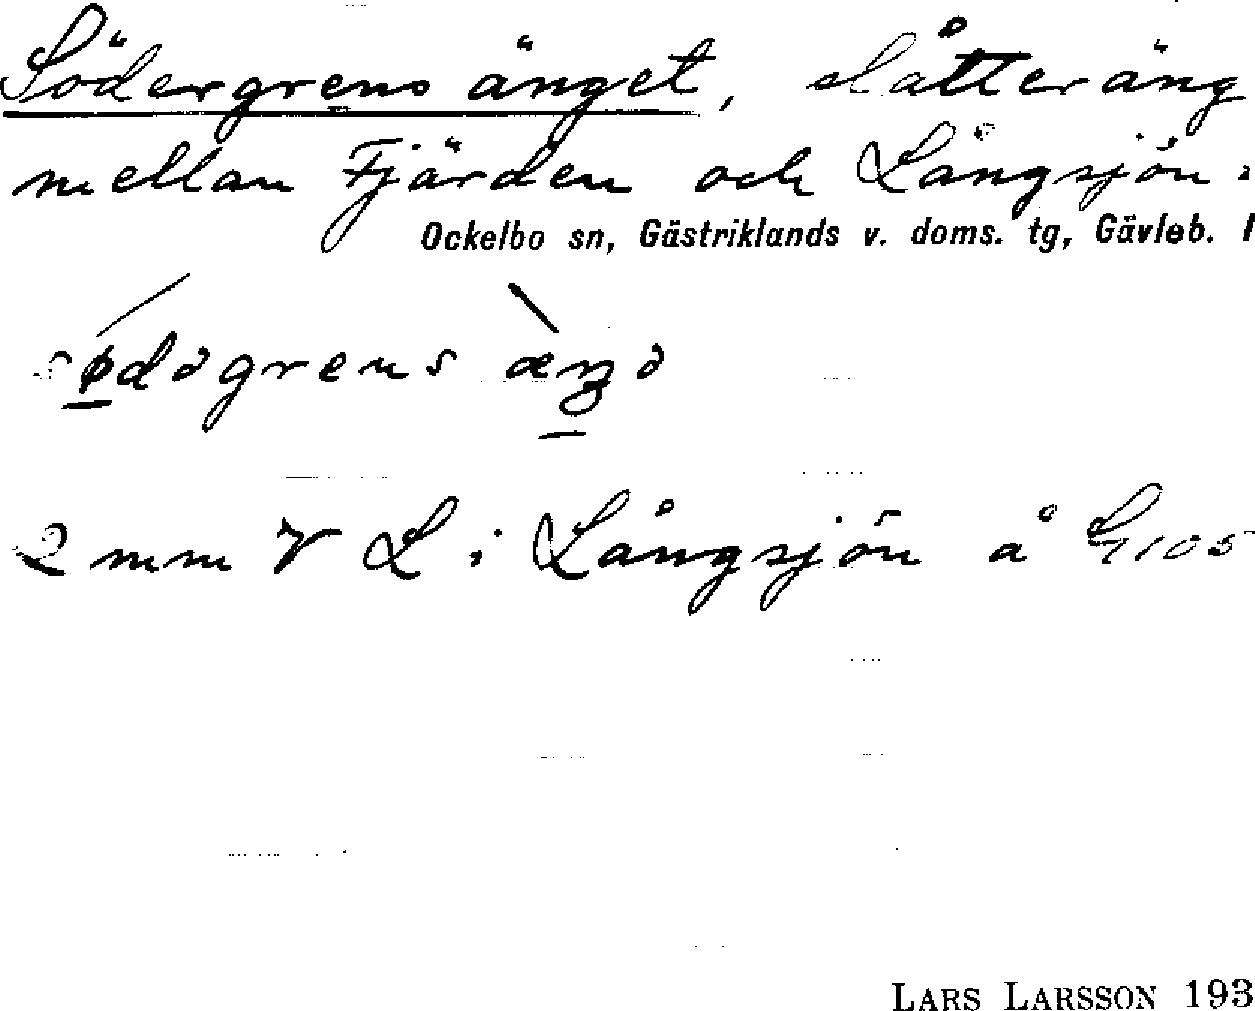 Södergrens änget, slåtteräng
mellan Fjärden och Långsjön.
Ockelbo sn, Gästriklands v. doms. tg, Gävleb. l
2 mm V L i Långsjön å G 105
LARS LARSSON 193